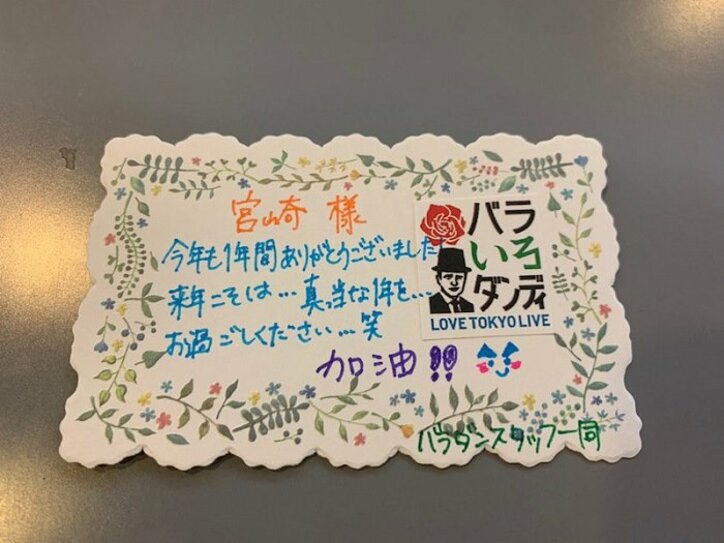 宮崎 様
今年も1年間ありがとうございました
来年こそは…真当な1年を…
お過ごしください…笑
加油!!
バラ
いろ
ダンディ
LOVE TOKYO LIVE
バラダンスタッフ一同